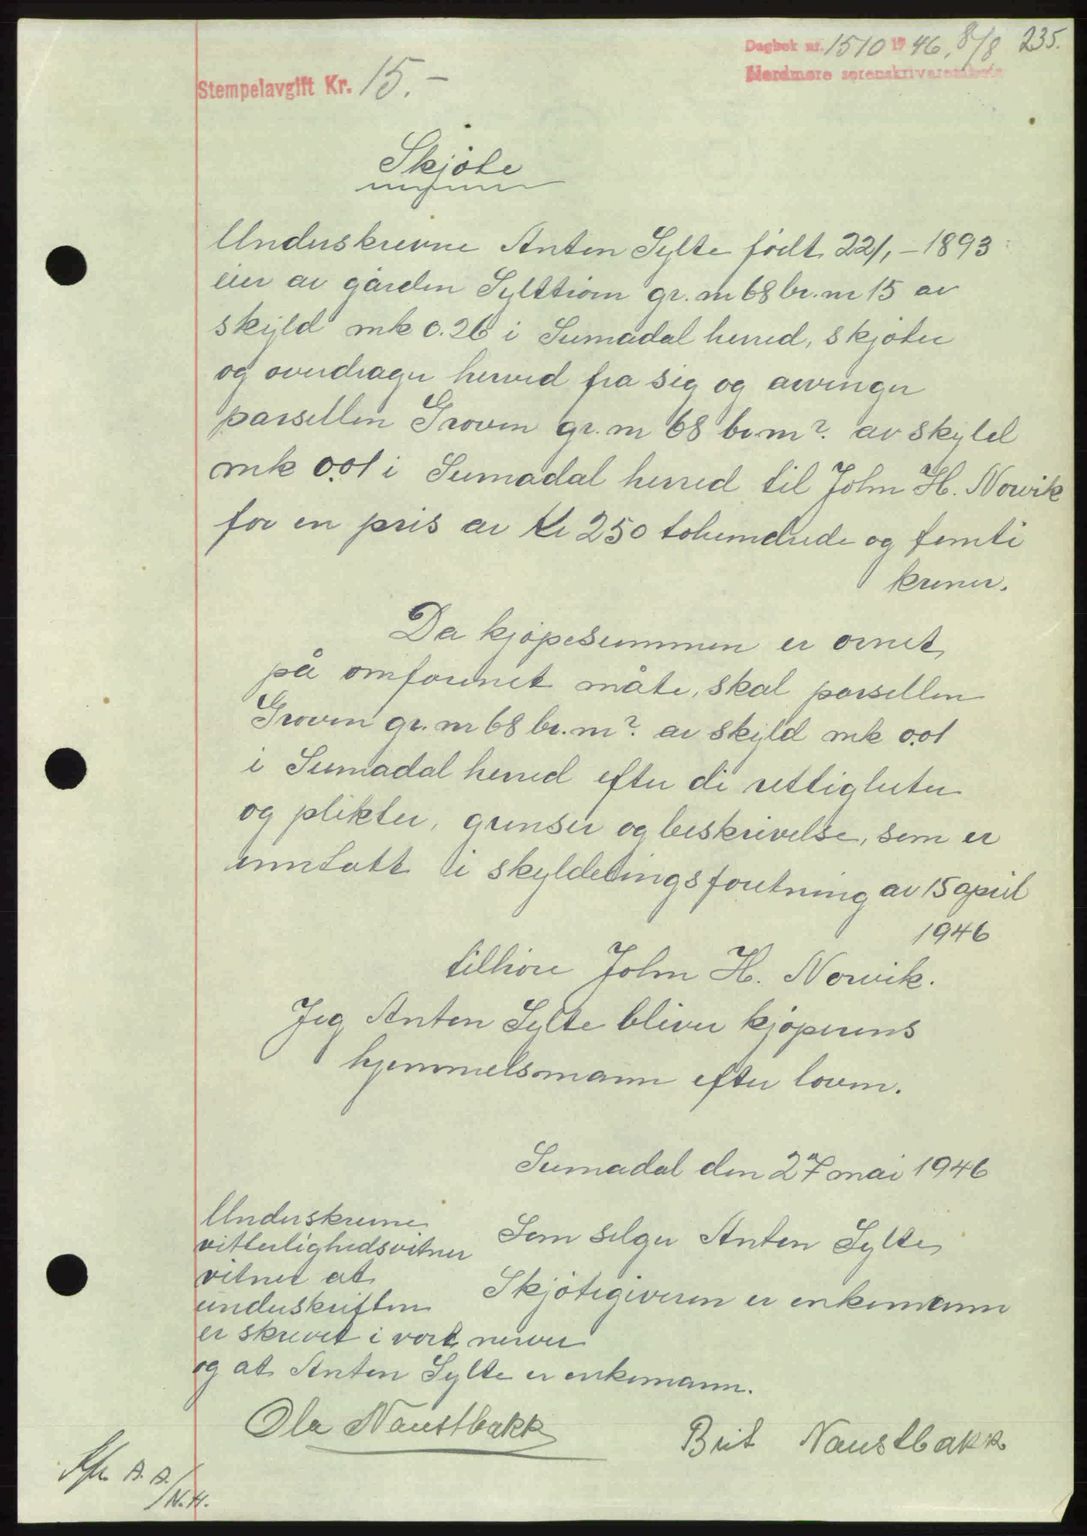 Dagbok nr. 1510 1946, 8/8 235.
Nordmøre sorenskriverembete
Stempelavgift Kr. 15.-
Skjøte
Underskrevne Anton Sylte født 22/1-1893
eier av gården Sylttrøm gr. nr 68 br. nr 15 av
skyld mk 0.26 i Surnadal herred, skjøter
og overdrager herved fra sig og arvinger
parsellen Groven gr. nr 68 br nr ? av skyld
mk 0.01 i Surnadal herred til John H. Norvik
for en pris av Kr 250 tohundrede og femti
kroner.
Da kjøpesummen er ornet
på omforenet måte, skal parsellen
Groven gr. nr 68 br. nr ? av skyld mk 0.01
i Surnadal herred efter de rettigheter
og plikter, grenser og beskrivelse, som er
inntatt i skylddelingsforretning av 15 april
1946
tilhøre John H. Norvik.
Jeg Anton Sylte bliver kjøperens
hjemmelsmann efter loven.
Surnadal den 27 mai 1946
Underskrevne
vitterlighedsvitner
vitner at
underskriften
er skrevet i vort nerver
og at Anton Sylte er enkemann.
Som selger Anton Sylte
Skjøtegiveren er enkemann
Ola Naustbakk
Brit Naustbakk
A. A.
/N.H.